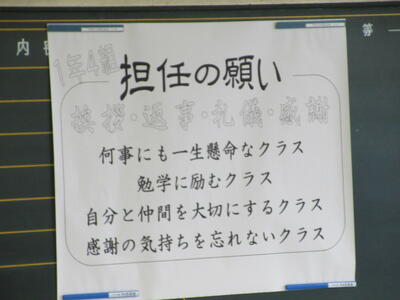 内容
等
1年4組
担任の願い
挨拶・返事・礼儀・感謝
何事にも一生懸命なクラス
勉学に励むクラス
自分と仲間を大切にするクラス
感謝の気持ちを忘れないクラス